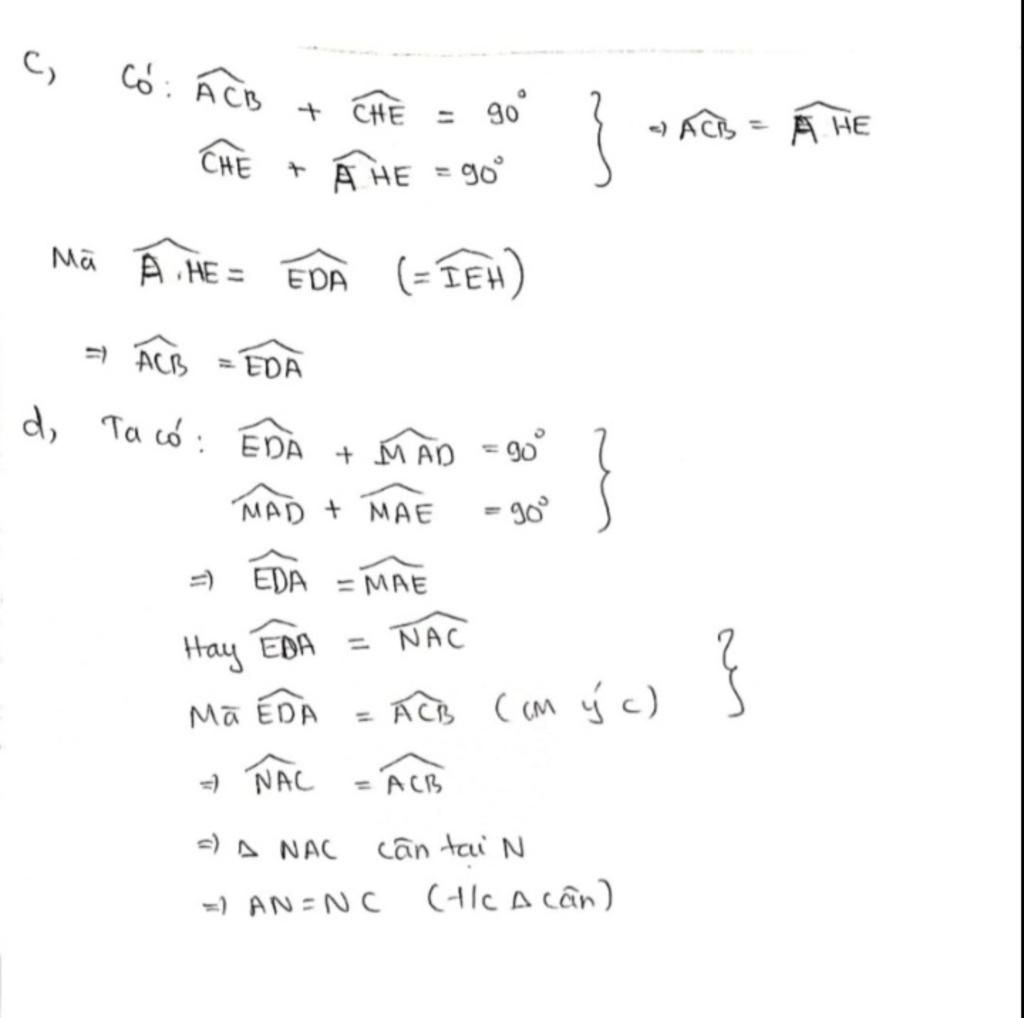 c, Có: $\widehat{ACB}$ + $\widehat{CHE}$ = 90° } ⇒ $\widehat{ACB}$ = $\widehat{AHE}$
$\widehat{CHE}$ + $\widehat{AHE}$ = 90°
Mã $\widehat{AHE}$ = $\widehat{EDA}$ (= $\widehat{IEH}$)
⇒ $\widehat{ACB}$ = $\widehat{EDA}$
d, Ta có: $\widehat{EDA}$ + $\widehat{MAD}$ = 90° }
$\widehat{MAD}$ + $\widehat{MAE}$ = 90°
⇒ $\widehat{EDA}$ = $\widehat{MAE}$
Hay $\widehat{EDA}$ = $\widehat{NAC}$ }
Mã $\widehat{EDA}$ = $\widehat{ACB}$ (cm ý c)
⇒ $\widehat{NAC}$ = $\widehat{ACB}$
⇒ Δ NAC cân tại N
⇒ AN = NC (t/c Δ cân)